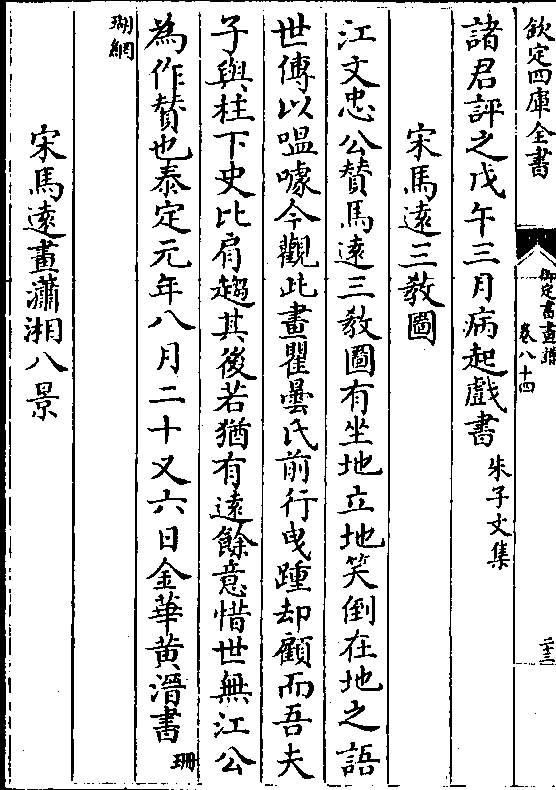 欽定四庫全書
御定書畫譜
卷八十四
二十三
諸君評之戊午三月病起戲書朱子文集
宋馬遠三教圖
江文忠公賛馬遠三教圖有坐地立地笑倒在地之語
世傳以嗢噱今觀此畫瞿曇氏前行曳踵却顧而吾夫
子與柱下史比肩趨其後若猶有遠餘意惜世無江公
為作賛也泰定元年八月二十又六日金華黄溍書珊
瑚網
宋馬逺畫瀟湘八景